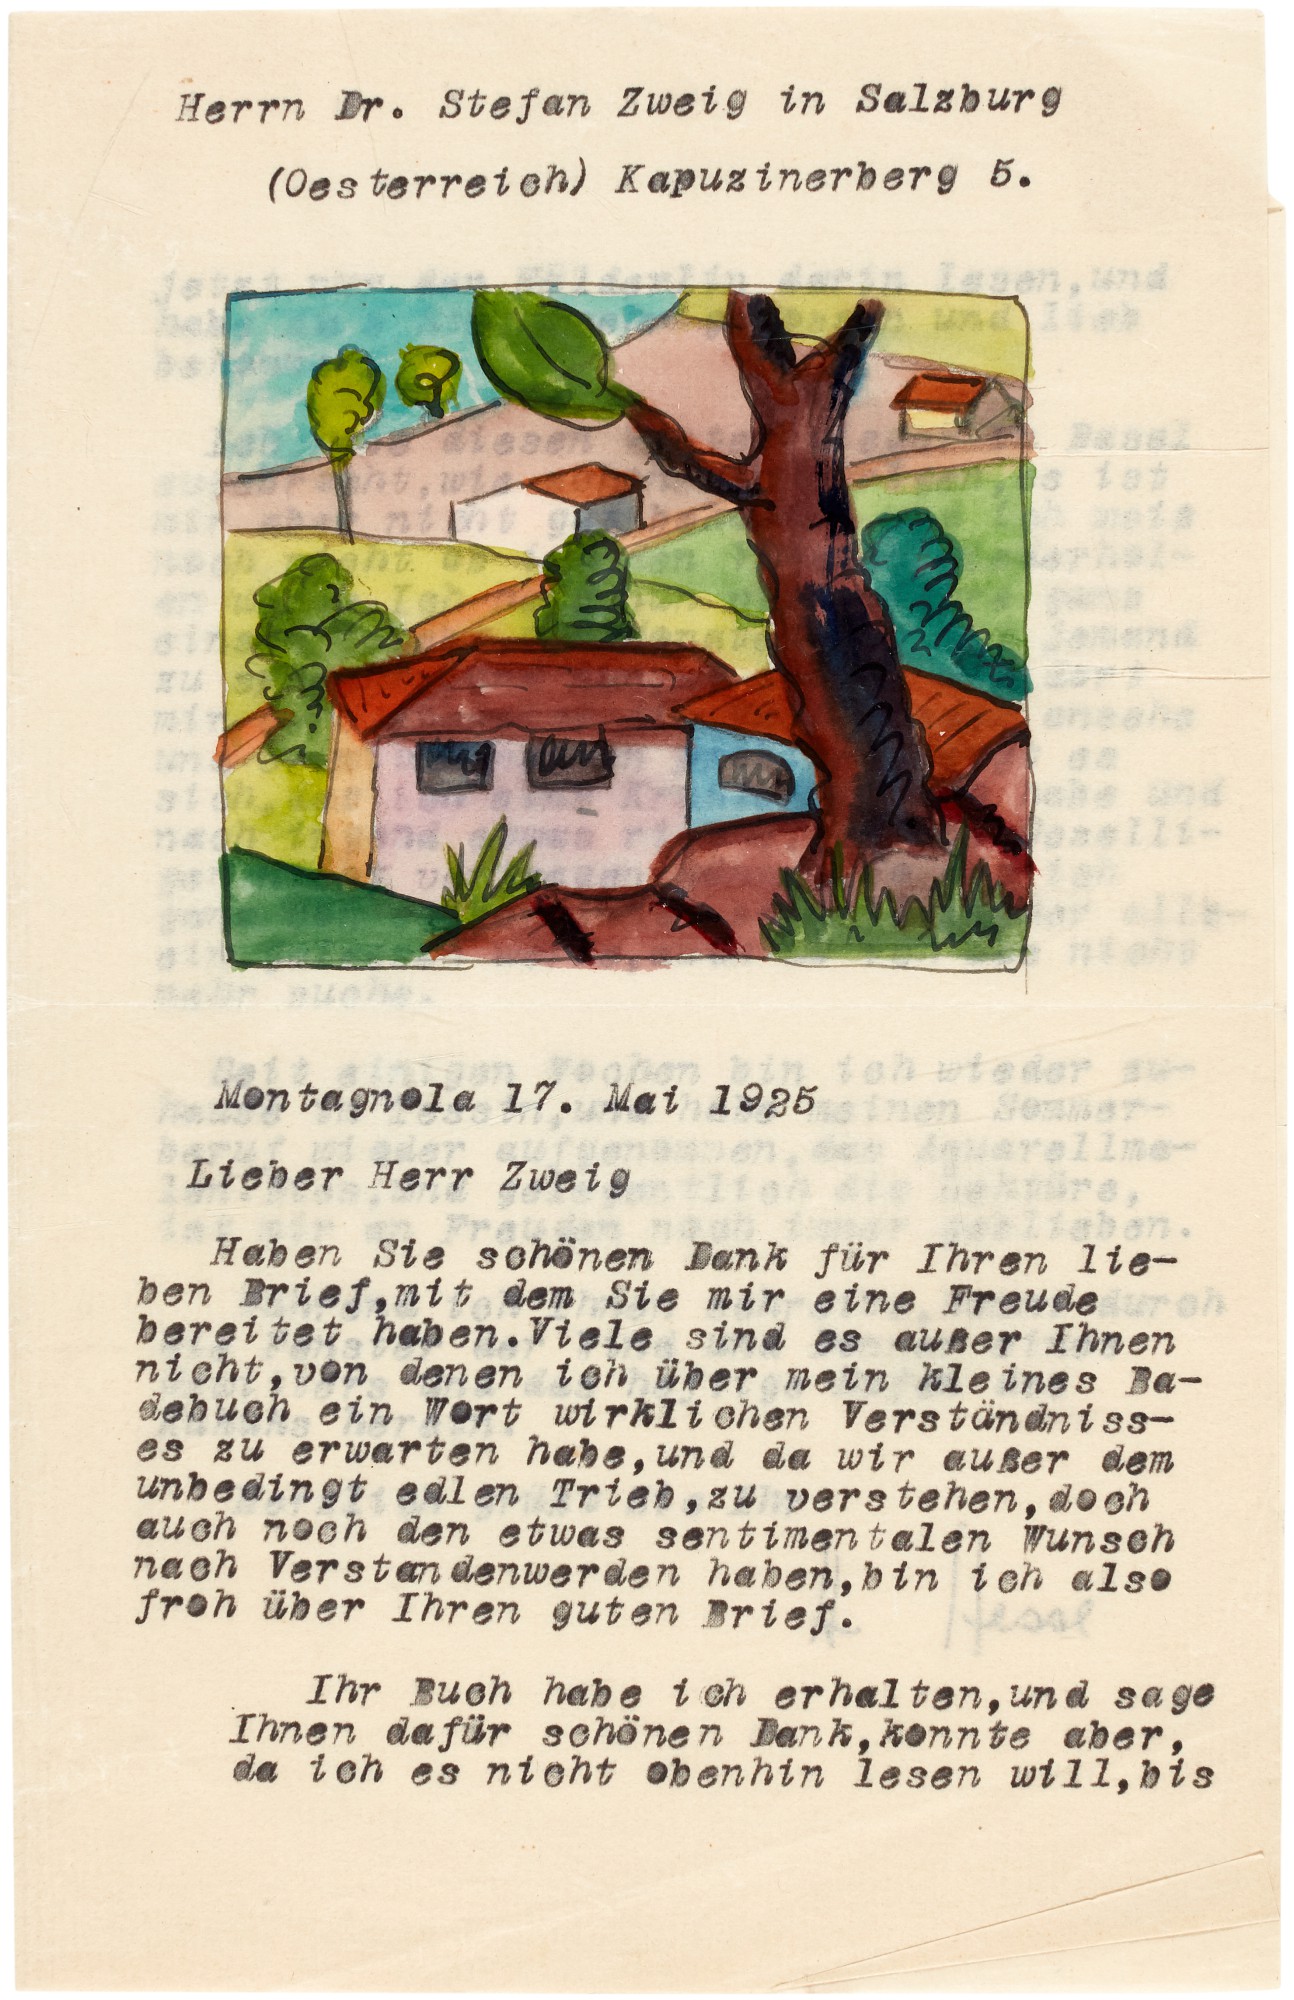 Herrn Dr. Stefan Zweig in Salzburg
(Oesterreich) Kapuzinerberg 5.
Montagnola 17. Mai 1925
Lieber Herr Zweig
Haben Sie schönen Dank für Ihren lie-
ben Brief,mit dem Sie mir eine Freude
bereitet haben.Viele sind es außer Ihnen
nicht,von denen ich über mein kleines Ba-
debuch ein Wort wirklichen Verständniss-
es zu erwarten habe,und da wir außer dem
unbedingt edlen Trieb,zu verstehen,doch
auch noch den etwas sentimentalen Wunsch
nach Verstandenwerden haben,bin ich also
froh über Ihren guten Brief.
Ihr Buch habe ich erhalten,und sage
Ihnen dafür schönen Dank,konnte aber,
da ich es nicht obenhin lesen will,bis